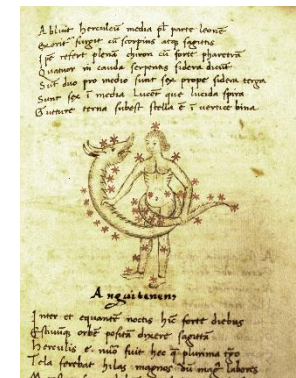 Abluit herculeũ media pl parte leonẽ
Exorit surgit cũ scorpius atqꝫ sagitta
Ipẽ refert plenã chiron cũ forte pharetrã
Quatuor in cauda serpentis sidera dicũt
Sũt duo pro medio sunt sex prope sidera terga
Sunt sex ĩ media lucet que lucida spira
Gutture terna subest stella ẽ ĩ vertice bina
Anguitenens
Inter et equantẽ noctis hĩc forte diebus
Estiuũqꝫ orbẽ positã dixere sagittã
Herculis ẽ nũo fuit hec q̃ plurima tyro
Tela ferebat hilas magnos dũ magᵒ labores